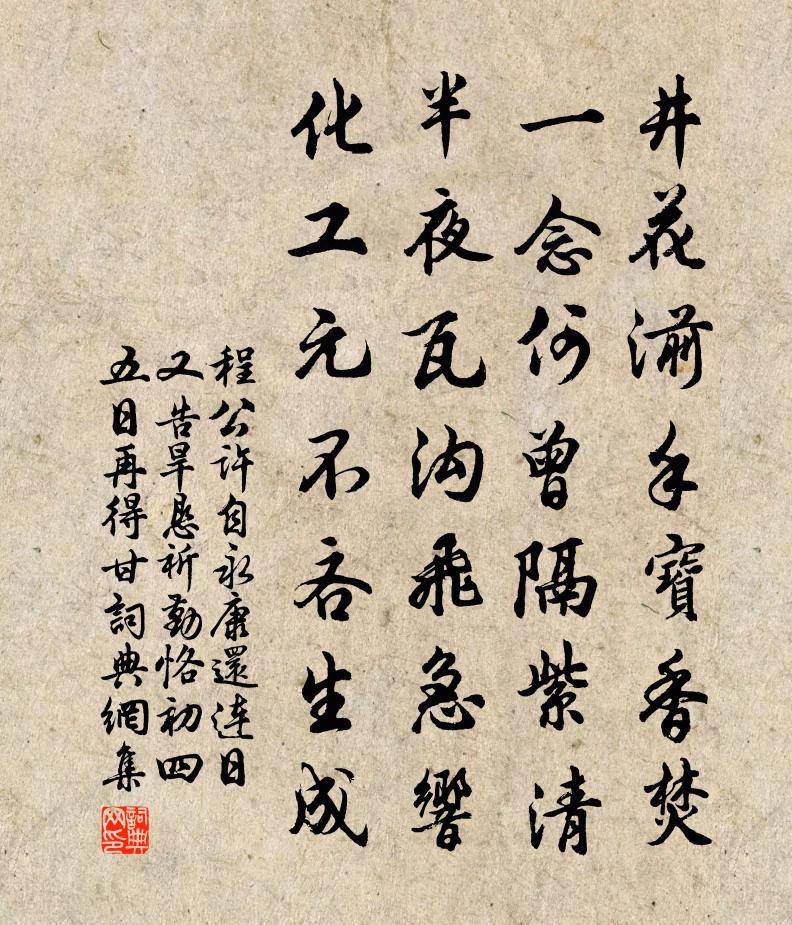 井花湔手寶香焚
一念何曾隔紫清
半夜瓦沟飛急響
化工元不吝生成
程公许自永康還连日
又告旱恳祈勤恪初四
五日再得甘詞典網集
詞典网印